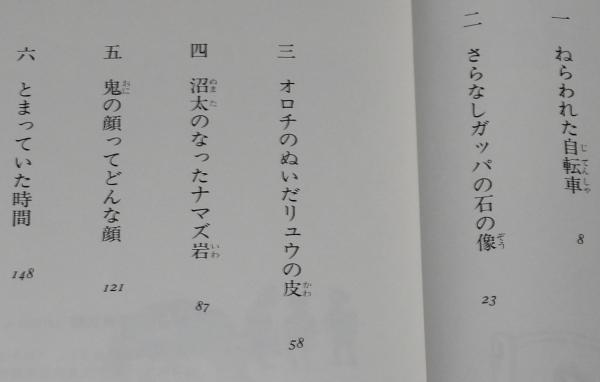 一 ねらわれた自転車 8
二 さらなしガッパの石の像 23
三 オロチのぬいだリュウの皮 58
四 沼太のなったナマズ岩 87
五 鬼の顔ってどんな顔 121
六 とまっていた時間 148